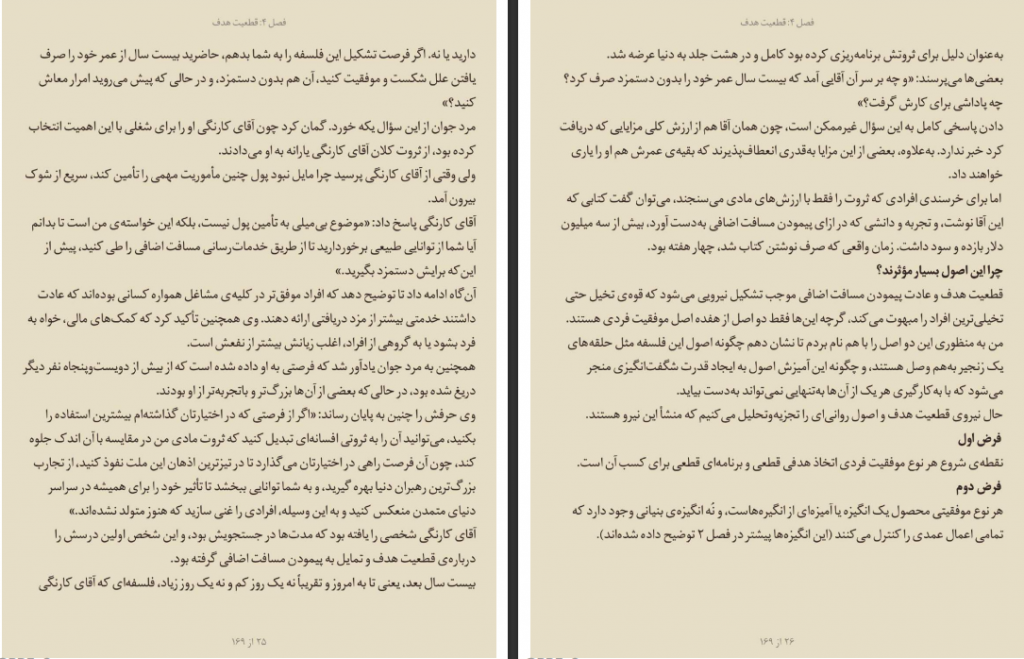 فصل ۴: قطعیت هدف
دارید یا نه. اگر فرصت تشکیل این فلسفه را به شما بدهم، حاضرید بیست سال از عمر خود را صرف
یافتن علل شکست و موفقیت کنید، آن هم بدون دستمزد، و در حالی که پیش می‌روید امرار معاش
کنید؟»
مرد جوان از این سؤال یکه خورد. گمان کرد چون آقای کارنگی او را برای شغلی با این اهمیت انتخاب
کرده بود، از ثروت کلان آقای کارنگی یارانه به او می‌دادند.
ولی وقتی از آقای کارنگی پرسید چرا مایل نبود پول چنین مأموریت مهمی را تأمین کند، سریع از شوک
بیرون آمد.
آقای کارنگی پاسخ داد: «موضوع بی‌میلی به تأمین پول نیست، بلکه این خواسته‌ی من است تا بدانم
آیا شما از توانایی طبیعی برخوردارید تا از طریق خدمات‌رسانی مسافت اضافی را طی کنید، پیش از
این‌که برایش دستمزد بگیرید.»
آن‌گاه ادامه داد تا توضیح دهد که افراد موفق‌تر در کلیه‌ی مشاغل همواره کسانی بوده‌اند که عادت
داشتند خدمتی بیشتر از مزد دریافتی ارائه دهند. وی همچنین تأکید کرد که کمک‌های مالی، خواه به
فرد بشود یا به گروهی از افراد، اغلب زیانش بیشتر از نفعش است.
همچنین به مرد جوان یادآور شد که فرصتی به او داده شده است که از بیش از دویست‌وپنجاه نفر دیگر
دریغ شده بود، در حالی که بعضی از آن‌ها بزرگ‌تر و باتجربه‌تر از او بودند.
وی حرفش را چنین به پایان رساند: «اگر از فرصتی که در اختیارتان گذاشته‌ام بیشترین استفاده را
بکنید، می‌توانید آن را به ثروتی افسانه‌ای تبدیل کنید که ثروت مادی من در مقایسه با آن اندک جلوه
کند، چون آن فرصت راهی در اختیارتان می‌گذارد تا در تیزترین اذهان این ملت نفوذ کنید، از تجارب
بزرگ‌ترین رهبران دنیا بهره گیرید، و به شما توانایی ببخشد تا تأثیر خود را برای همیشه در سراسر
دنیای متمدن منعکس کنید و به این وسیله، افرادی را غنی سازید که هنوز متولد نشده‌اند.»
آقای کارنگی شخصی را یافته بود که مدت‌ها در جستجویش بود، و این شخص اولین درسش را
درباره‌ی قطعیت هدف و تمایل به پیمودن مسافت اضافی گرفته بود.
بیست سال بعد، یعنی تا به امروز و تقریباً نه یک روز کم و نه یک روز زیاد، فلسفه‌ای که آقای کارنگی
۲۵ از ۱۶۹
فصل ۴: قطعیت هدف
به‌عنوان دلیل برای ثروتش برنامه‌ریزی کرده بود کامل و در هشت جلد به دنیا عرضه شد.
بعضی‌ها می‌پرسند: «و چه بر سر آن آقایی آمد که بیست سال عمر خود را بدون دستمزد صرف کرد؟
چه پاداشی برای کارش گرفت؟»
دادن پاسخی کامل به این سؤال غیرممکن است، چون همان آقا هم از ارزش کلی مزایایی که دریافت
کرد خبر ندارد. به‌علاوه، بعضی از این مزایا به‌قدری انعطاف‌پذیرند که بقیه‌ی عمرش هم او را یاری
خواهند داد.
اما برای خرسندی افرادی که ثروت را فقط با ارزش‌های مادی می‌سنجند، می‌توان گفت کتابی که
این آقا نوشت، و تجربه و دانشی که در ازای پیمودن مسافت اضافی به‌دست آورد، بیش از سه میلیون
دلار بازده و سود داشت. زمان واقعی که صرف نوشتن کتاب شد، چهار هفته بود.
چرا این اصول بسیار مؤثرند؟
قطعیت هدف و عادت پیمودن مسافت اضافی موجب تشکیل نیرویی می‌شود که قوه‌ی تخیل حتی
تخیلی‌ترین افراد را مبهوت می‌کند، گرچه این‌ها فقط دو اصل از هفده اصل موفقیت فردی هستند.
من به منظوری این دو اصل را با هم نام بردم تا نشان دهم چگونه اصول این فلسفه مثل حلقه‌های
یک زنجیر به‌هم وصل هستند، و چگونه این آمیزش اصول به ایجاد قدرت شگفت‌انگیزی منجر
می‌شود که با به‌کارگیری هر یک از آن‌ها به‌تنهایی نمی‌تواند به‌دست بیاید.
حال نیروی قطعیت هدف و اصول روانی‌ای را تجزیه‌وتحلیل می‌کنیم که منشأ این نیرو هستند.
فرض اول
نقطه‌ی شروع هر نوع موفقیت فردی اتخاذ هدفی قطعی و برنامه‌ای قطعی برای کسب آن است.
فرض دوم
هر نوع موفقیتی محصول یک انگیزه یا آمیزه‌ای از انگیره‌هاست، و نُه انگیزه‌ی بنیانی وجود دارد که
تمامی اعمال عمدی را کنترل می‌کنند (این انگیزه‌ها پیشتر در فصل ۲ توضیح داده شده‌اند).
۲۶ از ۱۶۹